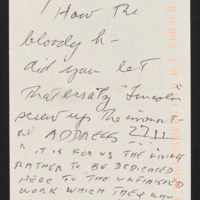 How the
bloody h-
did you let
that ersatz "Lincoln"
screw up the immort-
al ADDRESS ??!!
" IT IS FOR US THE LIVING
RATHER TO BE DEDICATED
HERE TO THE UNFINISHED
WORK WHICH THEY WHO